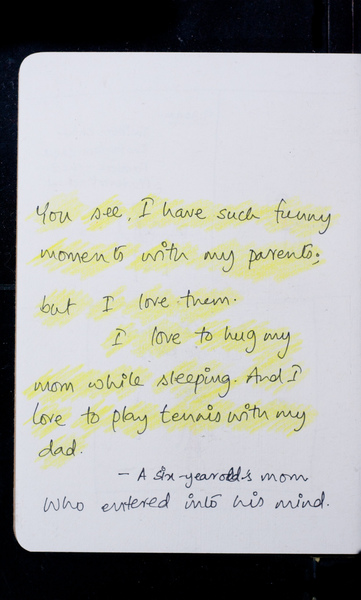 You see, I have such funny
moments with my parents;
but I love them.
I love to hug my
mom while sleeping. And I
love to play tennis with my
dad.
- A six-year old's mom
who entered into his mind.